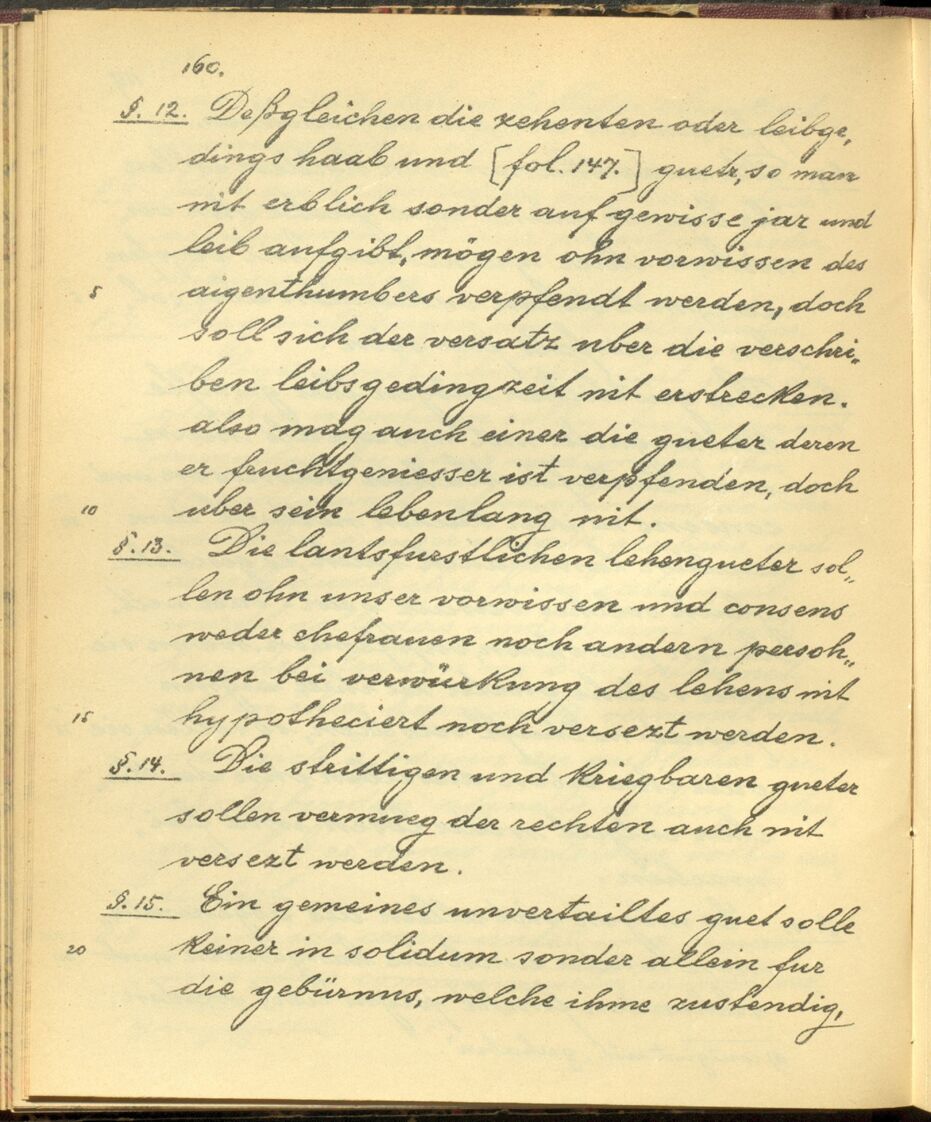 160.
§. 12. Deßgleichen die zehenten oder leibge„
dings haab und [fol. 147.] guetr, so man
nit erblich sonder auf gewisse jar und
leib aufgibt, mögen ohn vorwissen des
5 aigenthumbers verpfendt werden, doch
soll sich der versatz uber die verschri„
ben leibsgedingzeit nit erstrecken.
also mag auch einer die gueter deren
er fruchtgeniesser ist verpfenden, doch
10 uber sein lebenlang nit.
§. 13. Die lantsfurstlichen lehengueter sol„
len ohn unser vorwissen und consens
weder ehefrauen noch andern persoh„
nen bei verwürkung des lehens nit
15 hypotheciert noch versezt werden.
§. 14. Die strittigen und kriegbaren gueter
sollen vermueg der rechten auch nit
versezt werden.
§. 15. Ein gemeines unvertailtes guet solle
20 keiner in solidum sonder allein fur
die gebürnus, welche ihme zustendig,